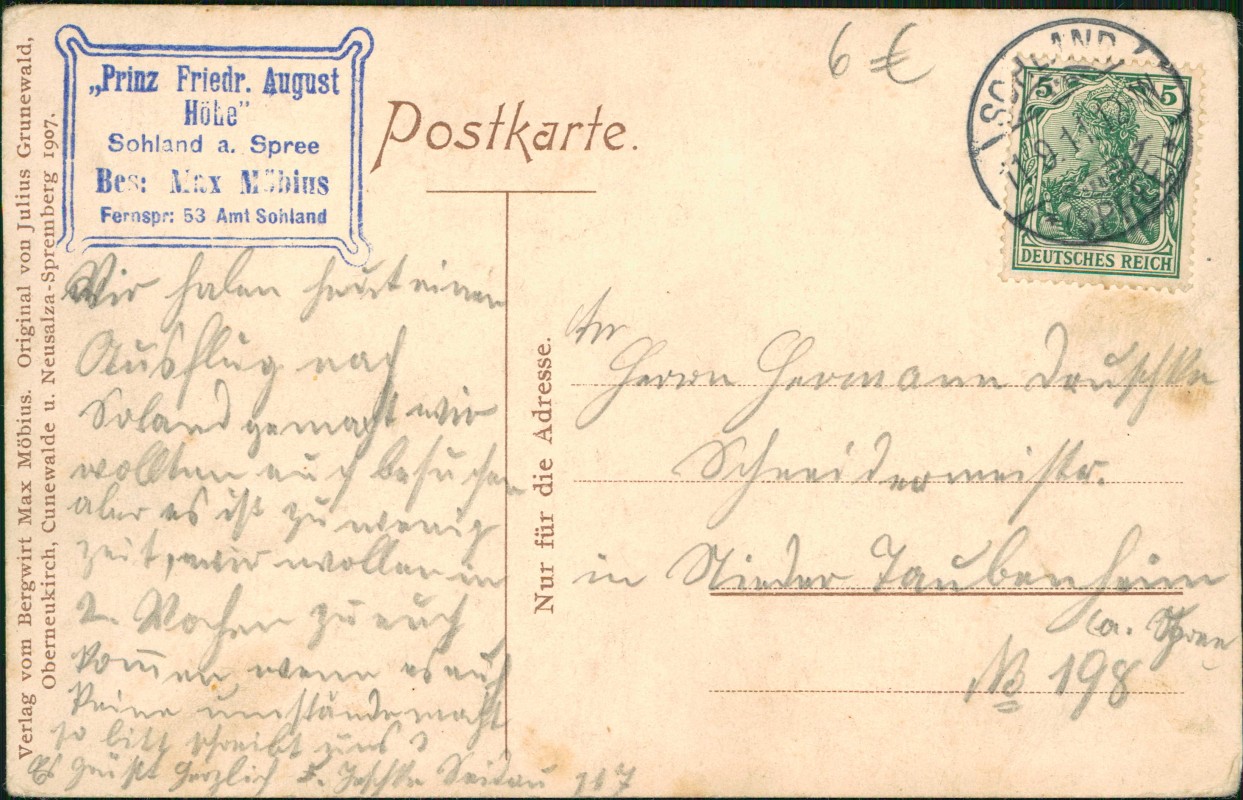 Verlag vom Bergwirt Max Möbius. Original von Julius Grunewald,
Oberneukirch, Cunewalde u. Neusalza-Spremberg 1907.
„Prinz Friedr. August
Höhe"
Sohland a. Spree
Bes: Max Möbius
Fernspr: 53 Amt Sohland
Postkarte.
6 €
SOHLAND
SPREE
5 5
DEUTSCHES REICH
Wir haben heut einen
Ausflug nach
Soland gemacht wir
wollten euch besuchen
aber es ist zu wenig
zeit, wir wollen in
2. Wochen zu euch
kommen wenn es euch
keine umstände macht
so bitt schreibt uns
Es grüßt herzlich
117
Nur für die Adresse.
An
Herrn Hermann
Schneidermeistr.
in Nieder Taubenheim
a. Spree
No 198